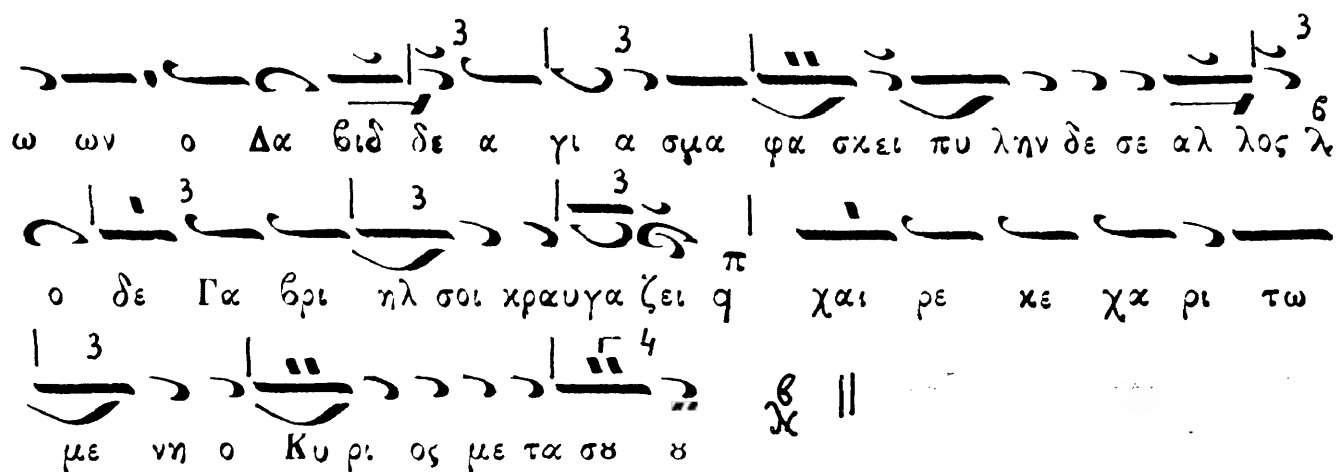 ω ων ο Δα βιδ δε α γι α σμα φα σκει πυ λην δε σε αλ λος
ο δε Γα βρι ηλ σοι κραυγα ζει χαι ρε κε χα ρι τω
με νη ο Κυ ρι ος με τα σȣ ȣ